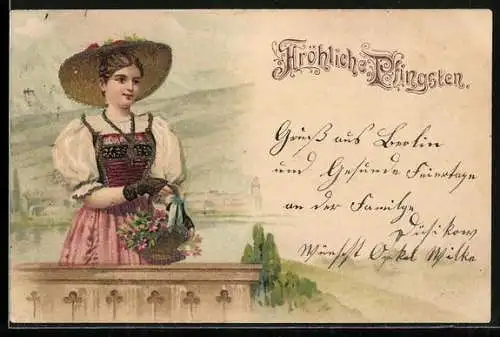 Fröhliche Pfingsten.
Gruß aus Berlin
und Gesunde Feiertage
an der Familge
Wünscht Onkel Wilke